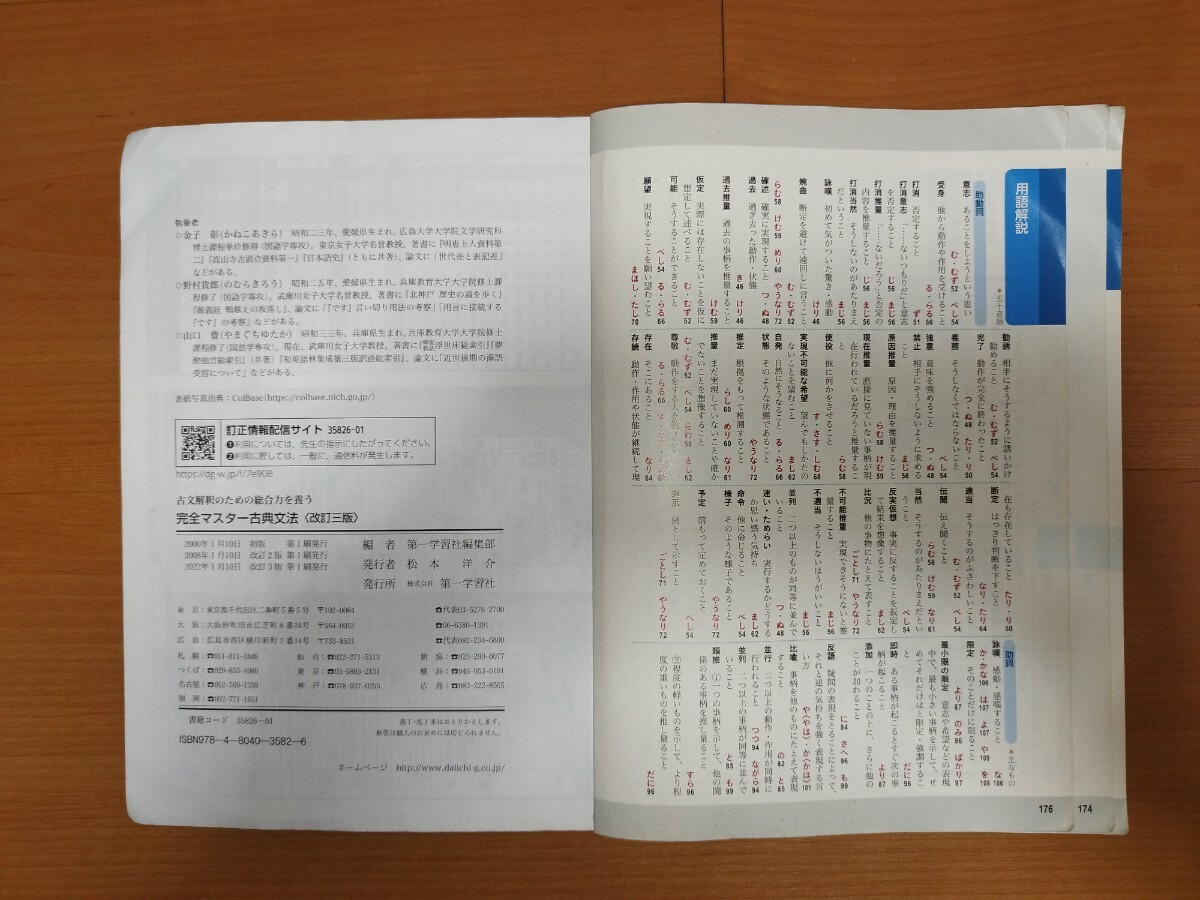 執筆者
○金子 彰(かねこあきら) 昭和二三年、愛媛県生まれ。広島大学大学院文学研究科
博士課程単位修得(国語学専攻)。東京女子大学名誉教授。著書に『明恵上人資料第
二』『高山寺古訓点資料第一』『日本語史』(ともに共著)、論文に「世代差と表記差」
などがある。
○野村貴郎(のむらきろう) 昭和二五年、愛媛県生まれ。兵庫教育大学大学院修士課
程修了(国語学専攻)。武庫川女子大学名誉教授。著書に『北神戸 歴史の道を歩く』
『源義経 鵯越えの坂落し』、論文に「『です』言い切り用法の考察」「用言に接続する
『です』の考察」などがある。
○山口 豊(やまぐちゆたか) 昭和三三年、兵庫県生まれ。兵庫教育大学大学院修士
課程修了(国語学専攻)。現在、武庫川女子大学教授。
(共著)『和英語林集成第三版訳語総索引』、論文に「近世後期の漢語
受容について」などがある。
表紙写真出典：ColBase(https://colbase.nich.go.jp/)
訂正情報配信サイト 35826-01
❶利用については、先生の指示にしたがってください。
❷利用に際しては、一般に、通信料が発生します。
https://dg-w.jp/f/7e908
古文解釈のための総合力を養う
完全マスター古典文法〈改訂三版〉
2000年1月10日 初版 第1刷発行
2008年1月10日 改訂2版 第1刷発行
2022年1月10日 改訂3版 第1刷発行
編 者 第一学習社編集部
発行者 松 本 洋 介
発行所 株式会社 第一学習社
東 京：東京都千代田区二番町5番5号 〒102-0084 ☎代表03-5276-2700
大 阪：吹田市広芝町8番24号 〒564-0052 ☎06-6380-1391
広 島：広島市西区横川新町7番14号 〒733-8521 ☎代表082-234-6800
札 幌：☎011-811-1848 仙 台：☎022-271-5313 新 潟：☎025-290-6077
つくば：☎029-853-1080 東 京：☎03-5803-2131 横 浜：☎045-953-6191
名古屋：☎052-769-1339 神 戸：☎078-937-0255 広 島：☎082-222-8565
福 岡：☎092-771-1651
書籍コード 35826-01
ISBN978-4-8040-3582-6
落丁・乱丁本はおとりかえします。
解答は個人のお求めには応じられません。
ホームページ http://www.daiichi-g.co.jp/
用語解説
＊五十音順
助動詞
意志 あることをしようという思い
む・むず52 べし54
受身 他から動作や作用を受けること
る・らる66
打消 否定すること ず51
打消意志 「……ないつもりだ」と意志
を否定すること じ56 まじ56
打消推量 「……ないだろう」と否定の
内容を推量すること じ56 まじ56
打消当然 そうしないのがあたりまえ
だということ まじ56
詠嘆 初めて気がついた驚き・感動
けり46
婉曲 断定を避けて遠回しに言うこと
む・むず52
らむ58 けむ59 めり60 やうなり72
確述 確実に実現すること つ・ぬ48
過去 過ぎ去った動作・状態
き46 けり46
過去推量 過去の事柄を推量すること
けむ59
仮定 実際には存在しないことを仮に
想定して述べること む・むず52
可能 そうすることができること
べし54 る・らる66
願望 実現することを願い望むこと
まほし・たし70
勧誘 相手にそうするように誘いかけ
勧めること む・むず52 べし54
完了 動作が完全に終わったこと
つ・ぬ48 たり・り50
義務 そうしなくてはならないこと
べし54
強意 意味を強めること つ・ぬ48
禁止 相手にそうしないように求める
こと まじ56
原因推量 原因・理由を推量すること
らむ58 けむ59
現在推量 直接に見ていない事柄が現
在行われているだろうと推量するこ
と らむ58
使役 他に何かをさせること
す・さす・しむ68
実現不可能な希望 望んでもしかたが
ないことを望むこと まし62
自発 自然にそうなること る・らる66
状態 そのような状態であること
やうなり72
推定 根拠をもって推測すること
らし60 めり60 なり61
推量 まだ実現していないことや確か
でないことを想像すること
む・むず52 べし54 らむ58 まし62
尊敬 動作をする人を
る・らる66
存在 そこにあること なり64
存続 動作・作用や状態が継続して現
在も存在していること たり・り50
断定 はっきり判断を下すこと
なり・たり64
適当 そうするのがふさわしいこと
む・むず52 べし54
伝聞 伝え聞くこと
らむ58 けむ59 なり61
当然 そうするのがあたりまえだとい
うこと べし54
反実仮想 事実に反することを仮定し
て結果を想像すること まし62
比況 他の事物にたとえて表すこと
ごとし71 やうなり72
不可能推量 実現できそうにないと推
量すること まじ56
不適当 そうしないほうがいいこと
まじ56
並列 二つ以上のものが同等に並んで
いること つ・ぬ48
迷い・ためらい 実行するかどうする
か思い惑う気持ち まし62
命令 他に命じること べし54
様子 そのような様子であること
やうなり72
予定 前もって定めておくこと べし54
例示 例として示すこと
ごとし71 やうなり72
助詞
＊主なもの
詠嘆 感動・感嘆すること な106
か・かな106 は107 よ107 や109 を109
限定 そのことだけに限ること
より87 のみ96 ばかり97
最小限の限定 意志や希望などの表現
中で、最も小さい事柄を示して、せ
めてそれだけはと限定・強調するこ
と だに96
即時 ある事柄が起こるとすぐ次の事
柄が起こること より87
添加 一つのことの上に、さらに他の
ことが加わること
に84 さへ96 も99
反語 疑問の表現をとることによって、
それと逆の気持ちを強く表現する言
い方 や〈やは〉・か〈かは〉101
比喩 事柄を他のものにたとえて表現
すること の82 と85
並行 二つ以上の動作・作用が同時に
行われること つつ94 ながら94
並列 二つ以上の事柄が同等に並んで
いること と85 も99
類推 ①一つの事柄を示して、他の関
係のある事柄を推し量ること
すら96
②程度の軽いものを示して、より程
度の重いものを推し量ること
だに96
176
174